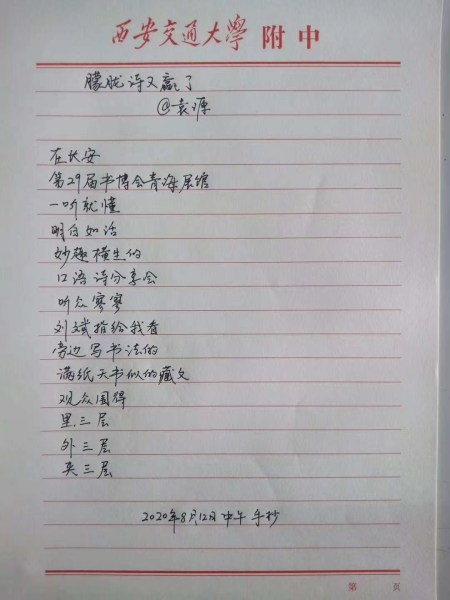 西安交通大學 附中
朦胧诗又赢了
@袁源
在长安
第29届书博会青海展馆
一听就懂
明白如话
妙趣横生的
口语诗分享会
听众寥寥
刘斌指给我看
旁边写书法的
满纸天书似的藏文
观众围得
里三层
外三层
夹三层
2020年8月12日中午手抄
第 页